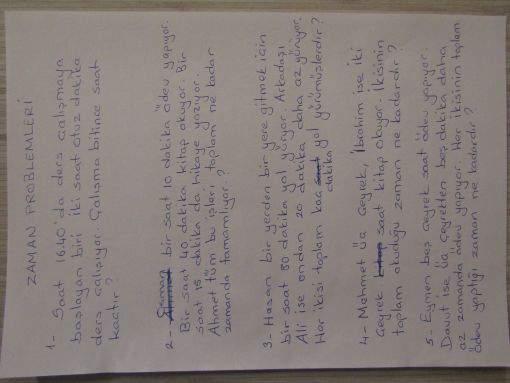 ZAMAN PROBLEMLERİ
1- Saat 16.40'da ders çalışmaya
başlayan biri iki saat otuz dakika
ders çalışıyor. Çalışma bitince saat
kaçtır?
2- Osman bir saat 10 dakika ödev yapıyor.
Bir saat 40 dakika kitap okuyor. Bir
saat 15 dakika da hikaye yazıyor.
Ahmet tüm bu işleri toplam ne kadar
zamanda tamamlıyor?
3- Hasan bir yerden bir yere gitmek için
bir saat 80 dakika yol yürüyor. Arkadaşı
Ali ise ondan 20 dakika daha az yürüyor.
Her ikisi toplam kaç dakika yol yürümüşlerdir?
4- Mehmet üç çeyrek, İbrahim ise iki
çeyrek saat kitap okuyor. İkisinin
toplam okuduğu zaman ne kadardır?
5- Eymen beş çeyrek saat ödev yapıyor.
Davut ise üç çeyrekten beş dakika daha
az zamanda ödev yapıyor. Her ikisinin toplam
ödev yaptığı zaman ne kadardır?